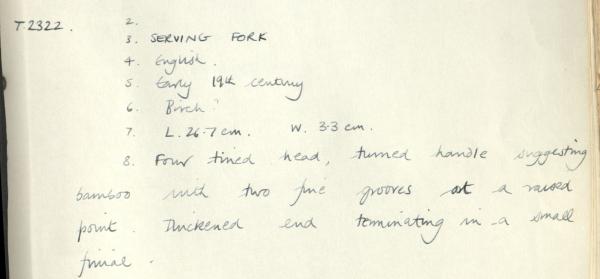 T.2322. 2.
3. SERVING FORK
4. English.
5. Early 19th century
6. Birch?
7. L. 26.7 cm. W. 3.3 cm.
8. Four tined head, turned handle suggesting
bamboo with two fine grooves at a raised
point. Thickened end terminating in a small
finial.